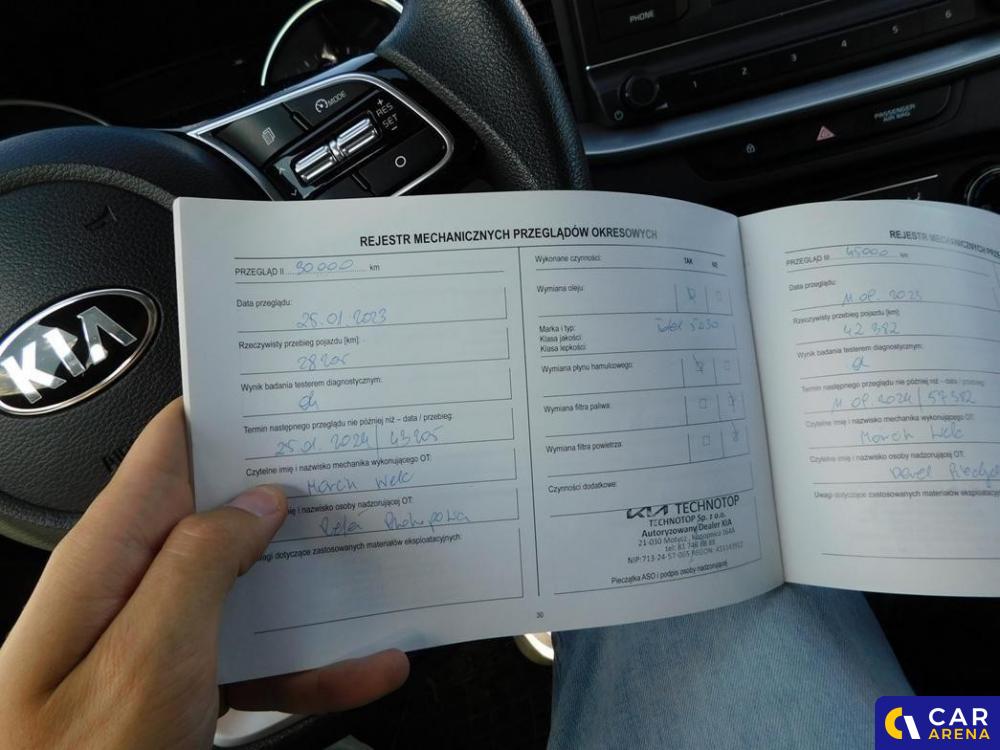 PHONE
1 2 3 4 5 6
MODE
RES
SET
PASSENGER
AIR BAG
KIA
REJESTR MECHANICZNYCH PRZEGLĄDÓW OKRESOWYCH
PRZEGLĄD II 30000 km
Data przeglądu:
25.01.2023
Rzeczywisty przebieg pojazdu [km]:
28205
Wynik badania testerem diagnostycznym:
ok
Termin następnego przeglądu nie później niż – data / przebieg:
25.01.2024 / 43205
Czytelne imię i nazwisko mechanika wykonującego OT:
Marcin Welc
imię i nazwisko osoby nadzorującej OT:
Uwagi dotyczące zastosowanych materiałów eksploatacyjnych
Wykonane czynności: TAK NIE
Wymiana oleju:
Marka i typ:
Klasa jakości:
Klasa lepkości:
5W30
Wymiana płynu hamulcowego:
Wymiana filtra paliwa:
Wymiana filtra powietrza:
Czynności dodatkowe:
KIA TECHNOTOP
TECHNOTOP Sp. z o.o.
Autoryzowany Dealer KIA
21-030 Motycz, Konopnica 164A
tel: 81 748 88 88
NIP:713-24-57-005 REGON:
Pieczątka ASO i podpis osoby nadzorującej
30
REJESTR MECHANICZNYCH PRZE
PRZEGLĄD III 45000 km
Data przeglądu:
11.08.2023
Rzeczywisty przebieg pojazdu [km]:
42382
Wynik badania testerem diagnostycznym:
ok
Termin następnego przeglądu nie później niż – data / przebieg:
11.08.2024 / 57382
Czytelne imię i nazwisko mechanika wykonującego OT:
Marcin Welc
Czytelne imię i nazwisko osoby nadzorującej OT:
Uwagi dotyczące zastosowanych materiałów eksploatac
CAR
ARENA